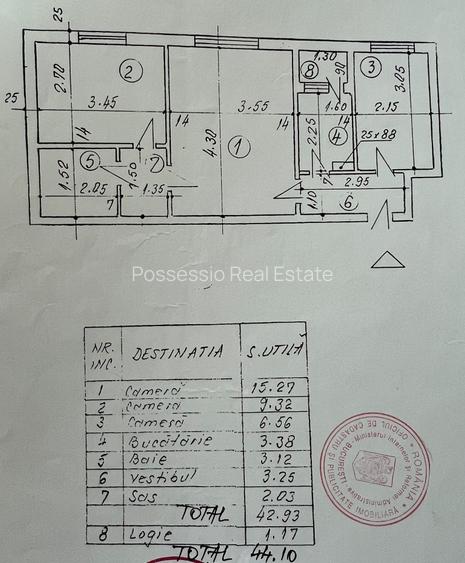 25
2.70
2
3.45
14
25
3.55
14
4.30
1
1.30
8
90
1.60
14
2.25
4
3
3.05
2.15
25x88
1.52
5
2.05
1.50
7
1.35
7
7
2.95
1.10
6
Possessio Real Estate
NR. INC. DESTINATIA S.UTILA
1 Cameră 15.27
2 Camera 9.32
3 Camera 6.56
4 Bucătărie 3.38
5 Baie 3.12
6 Vestibul 3.25
7 Sas 2.03
TOTAL 42.93
8 Logie 1.17
TOTAL 44.10
ROMÂNIA
OFICIUL DE CADASTRU ȘI PUBLICITATE IMOBILIARĂ
BUCUREȘTI
Ministerul Internelor și Reformei Administrative